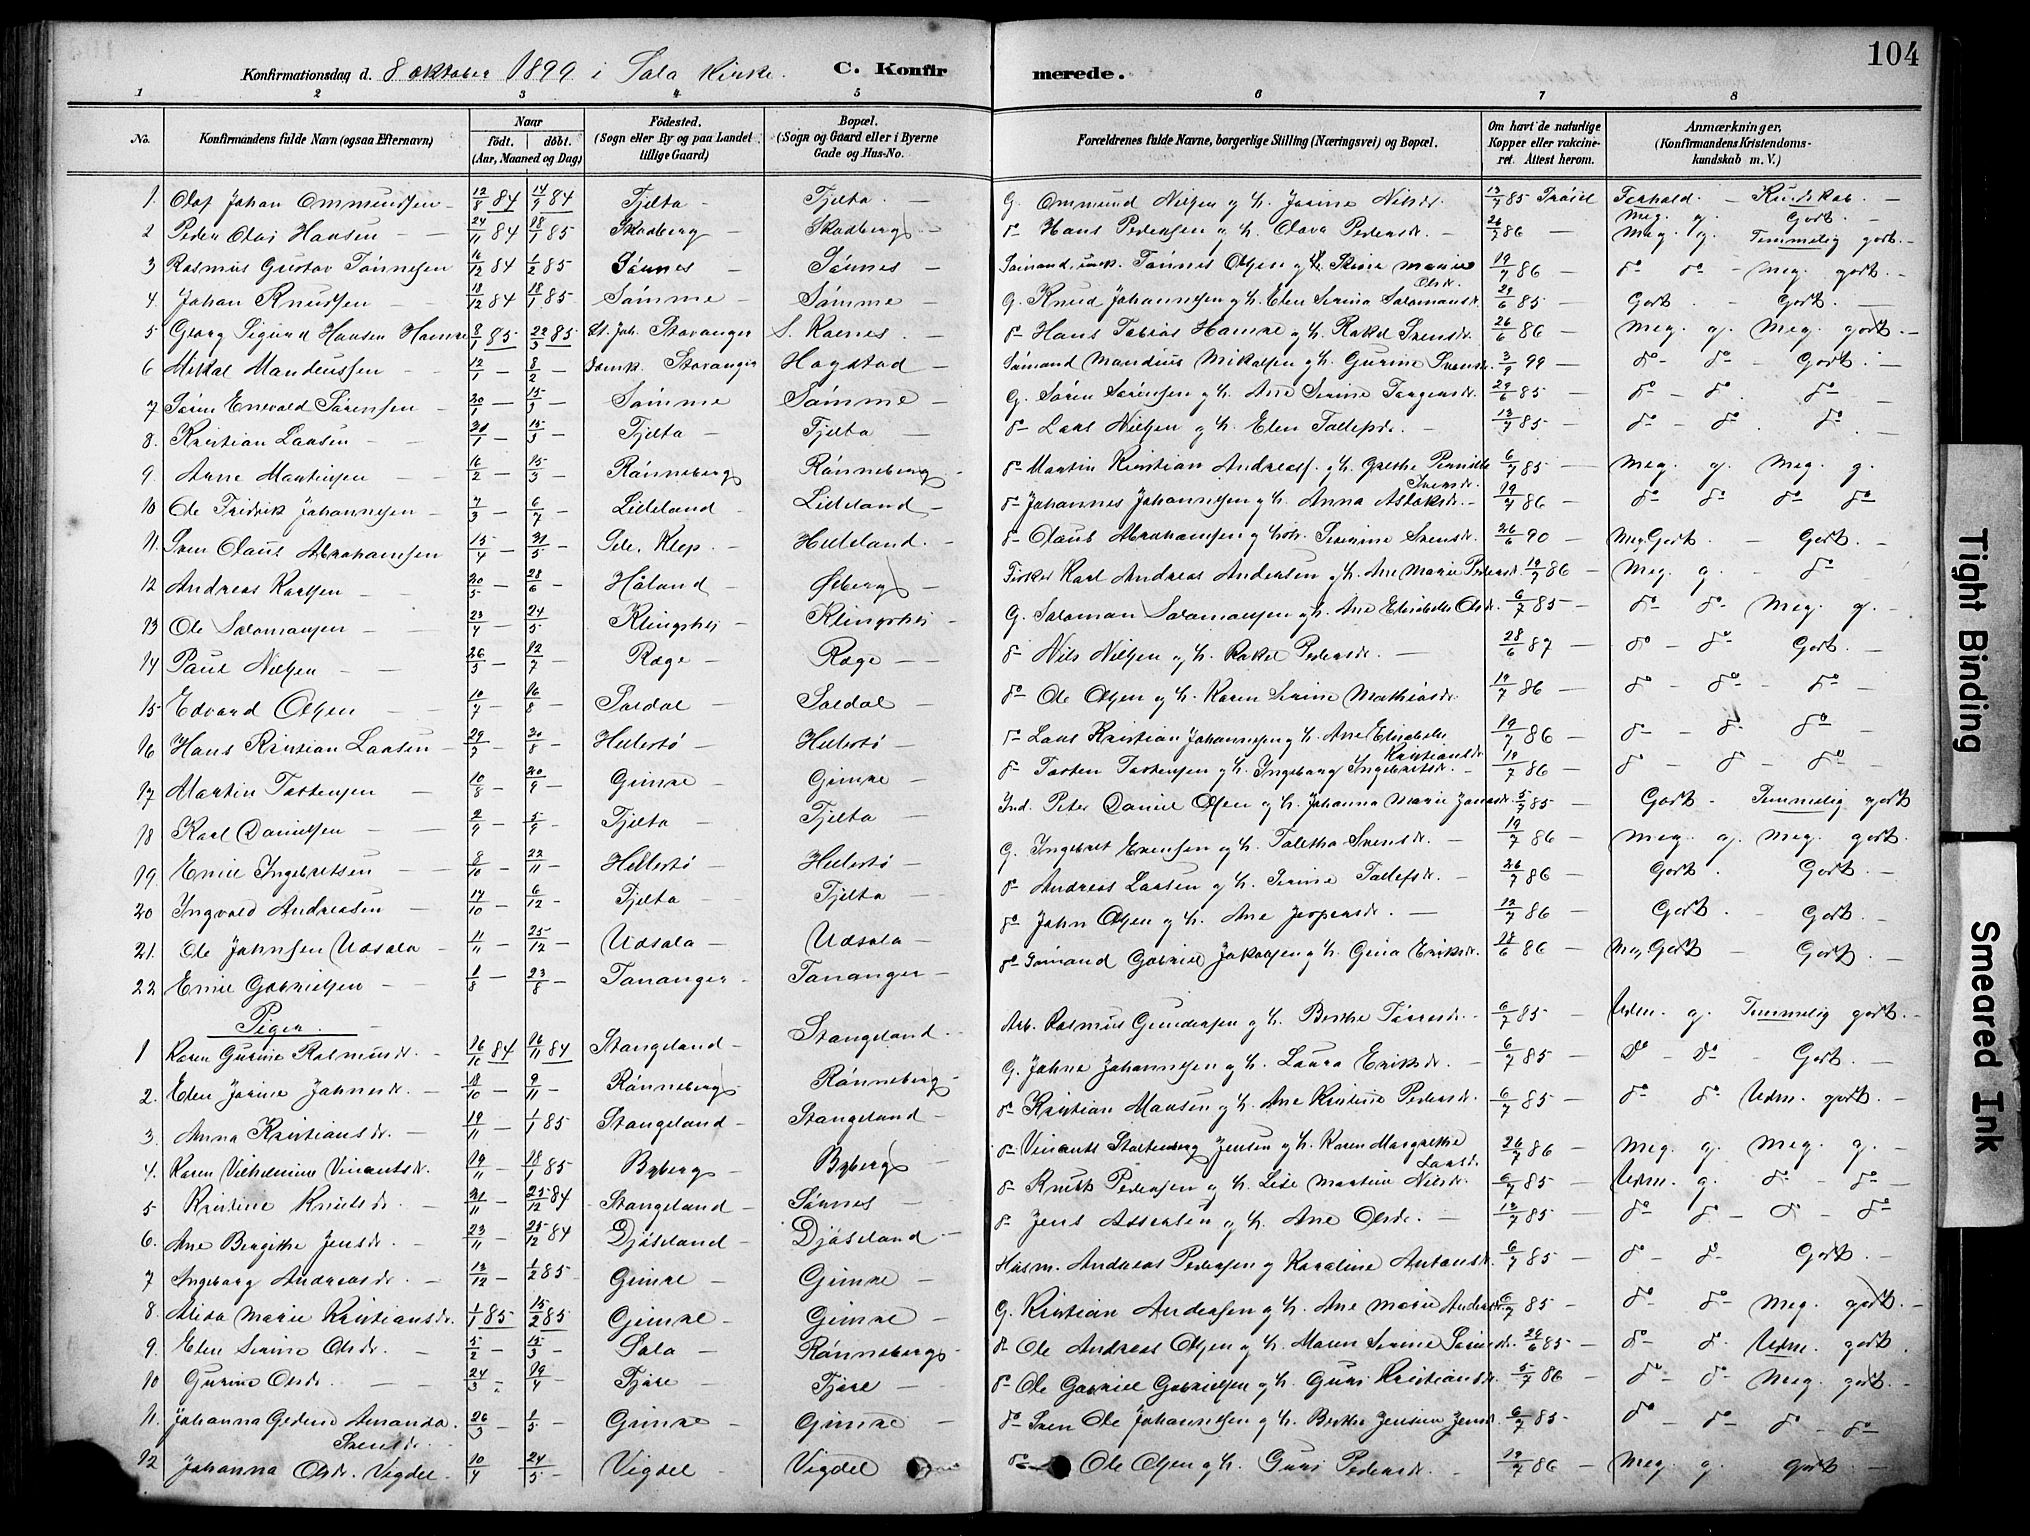 104
Konfirmationsdag d. 8 oktober 1899 i Sola Kirke. C. Konfirmerede.
1 2 3 4 5 6 7 8
No. Konfirmandens fulde Navn (ogsaa Efternavn) Naar født. døbt. (Aar, Maaned og Dag) Fødested. (Sogn eller By og paa Landet tillige Gaard) Bopæl. (Sogn og Gaard eller i Byerne Gade og Hus-No. Forældrenes fulde Navne, borgerlige Stilling (Næringsvei) og Bopæl. Om havt de naturlige Kopper eller vakcineret. Attest herom. Anmærkninger, (Konfirmandens Kristendomskundskab m. V.)
1. Olaf Johan Ommundsen 12/8 84 14/9 84 Tjelta Tjelta G. Ommund Nielsen og H. Jorine Nilsdr. 13/7 85 Forhold Kundskab
2 Peder Olai Hansen 24/11 84 18/1 85 Skadberg Skadberg do Hans Pedersen og H. Olava Pedersdr. 26/7 86 Meg. g. Godt
Meg. g. Temmelig godt.
3 Rasmus Gustav Tønnesen 16/12 84 1/2 85 Sønnes Sønnes Sømand, Tønnes Olsen og H. Stine Marie Olsdr. 19/7 86 do do Meg. godt.
4. Johan Knudsen 18/12 84 18/1 85 Sømme Sømme G. Knud Johannesen og H. Elen Serina Salomonsdr. 29/6 85 Godt Godt.
5 Georg Sigurd Hansen Hamre 8/1 85 22/3 85 St. Joh. Stavanger S. Kolnes do Hans Tobias Hamre og H. Rakel Svensdr. 26/6 86 Meg. g. Meg. godt
6 Mikal Mandeussen 12/1 8/2 Domk. Stavanger Hogstad Sømand Mandius Mikalsen og H. Gurine Svensdr. 3/9 99 do do Godt.
7 Søren Enevald Sørensen 20/1 15/3 Sømme Sømme G. Søren Sørensen og H. Ane Serine Torgersdr. 29/6 85 do do do
8. Kristian Larsen 30/1 15/3 Tjelta Tjelta do Lars Nielsen og H. Elen Tollefsdr. 13/7 85 do do do
9. Arne Martinsen 16/2 15/3 Rønneberg Rønneberg do Martin Kristian Andreass. og H. Grethe Pernille Svensdr. 6/7 85 Meg. g. Meg. g.
10 Ole Fredrik Johannesen 7/3 6/7 Lilleland Lilleland do Johannes Johannesen og H. Anna Aslaksdr. 19/7 86 do do do do
11. Sven Olaus Abrahamsen 15/4 31/5 Pele, Klep. Helleland. do Olaus Abrahamsen og Serine Svensdr. 26/6 90 Meg. Godt Godt.
12 Andreas Karlsen 20/5 28/6 Håland Østberg Fisker Karl Andreas Andersen og H. Ane Marie Pedersdr. 19/7 86 Meg. g. do
13 Ole Salomonsen 23/4 24/5 Klingshei Klingshei G. Salomon Salomonsen og H. Ane Elisabeth Olsdr. 6/7 85 do do Meg. g.
14 Paul Nielsen 26/5 12/7 Ræge Ræge do Nils Nielsen og H. Rakel Pedersdr. 28/6 87 do do Godt.
15 Edvard Olsen 10/7 16/8 Soldal Soldal do Ole Olsen og H. Karen Serine Mathiasdr. 19/7 86 do do do
16 Hans Kristian Larsen 29/7 30/8 Hellestø Hellestø do Lars Kristian Johannesen og H. Ane Elisabeth Kristiansdr. 19/7 86 do do do
17 Martin Tostensen 10/8 20/9 Gimre Gimre do Tosten Tostensen og H. Ingeborg Ingebretsdr. 19/7 86 do do do
18 Karl Danielsen 2/9 5/9 Tjelta Tjelta Ind. Peter Daniel Olsen og H. Johanna Marie Jonasdr. 5/7 85 Godt Temmelig godt
19. Emil Ingebretsen 9/10 22/11 Hellestø Hellestø G. Ingebret Evensen og H. Taletha Svensdr. 19/7 86 Meg. g. Meg. godt.
20 Ingvald Andreasen 17/10 6/12 Tjelta Tjelta do Andreas Larsen og H. Serine Tollefsdr. 26/7 86 Godt. Godt.
21. Ole Johnsen Udsola 11/11 25/12 Udsola Udsola do John Olsen og H. Ane Jespersdr. 12/7 86 Godt. Godt.
22 Emil Gabrielsen 1/8 23/8 Tananger Tananger do Sømand Gabriel Jakobsen og H. Gina Eriksdr. 28/6 86 Meg. Godt Godt.
Piger.
1 Karen Gurine Rasmusdr. 16/10 84 16/11 84 Stangeland Stangeland Arb. Rasmus Gundersen og H. Berthe Tørresdr. 6/7 85 Udm. g. Temmelig godt.
2. Elen Jorine Johnesdr. 18/10 9/11 Rønneberg Rønneberg G. Johne Johannesen og H. Laura Eriksdr. 6/7 85 Do Do Godt.
3. Anna Kristiansdr. 19/11 1/1 85 Stangeland Stangeland do Kristian Monsen og H. Ane Kristine Pedersdr. 6/7 85 do do Udm. godt.
4. Karen Vilhelmine Vincentsdr. 19/11 18/1 85 Byberg Byberg do Vincents Stoltenberg Jensen og H. Karen Margrethe Larsdr. 26/7 86 Meg. g. Meg. g.
5 Kristine Knutsdr. 21/11 25/12 84 Stangeland Sønnes do Knut Pedersen og H. Lise Martine Nilsdr. 6/7 85 Udm. g. do do
6. Ane Bergithe Jensdr. 23/11 25/12 84 Djøseland Djøseland do Jens Assersen og H. Ane Olsdr. 13/7 85 do do do do
7 Ingeborg Andreasdr. 13/12 1/2 85 Gimre Gimre Husm. Andreas Pedersen og Karoline Antonsdr. 6/7 85 do do Godt
8. Alida Marie Kristiansdr. 1/1 85 15/2 85 Gimre Gimre G. Kristian Andersen og H. Ane Marie Andersdr. 6/7 85 do do Meg. godt.
9. Elen Serine Olsdr. 5/2 15/3 Sola Rønneberg do Ole Andreas Olsen og H. Maren Serine Sørensdr. 29/6 85 do do Udm. godt.
10 Gurine Olsdr. 24/3 19/4 Tjøre Tjøre do Ole Gabriel Gabrielsen og H. Guri Kristiansdr. 5/7 86 do do Meg. godt.
11. Johanna Gedine Amanda Svensdr. 26/3 1/5 Gimre Gimre do Sven Ole Johannesen og H. Berthe Jensine Jensdr. 6/7 85 do do do do
12 Johanna Olsdr. Vigdel 10/4 24/5 Vigdel Vigdel do Ole Olsen og H. Guri Pedersdr. 19/7 86 Meg. g. godt
Tight Binding
Smeared Ink